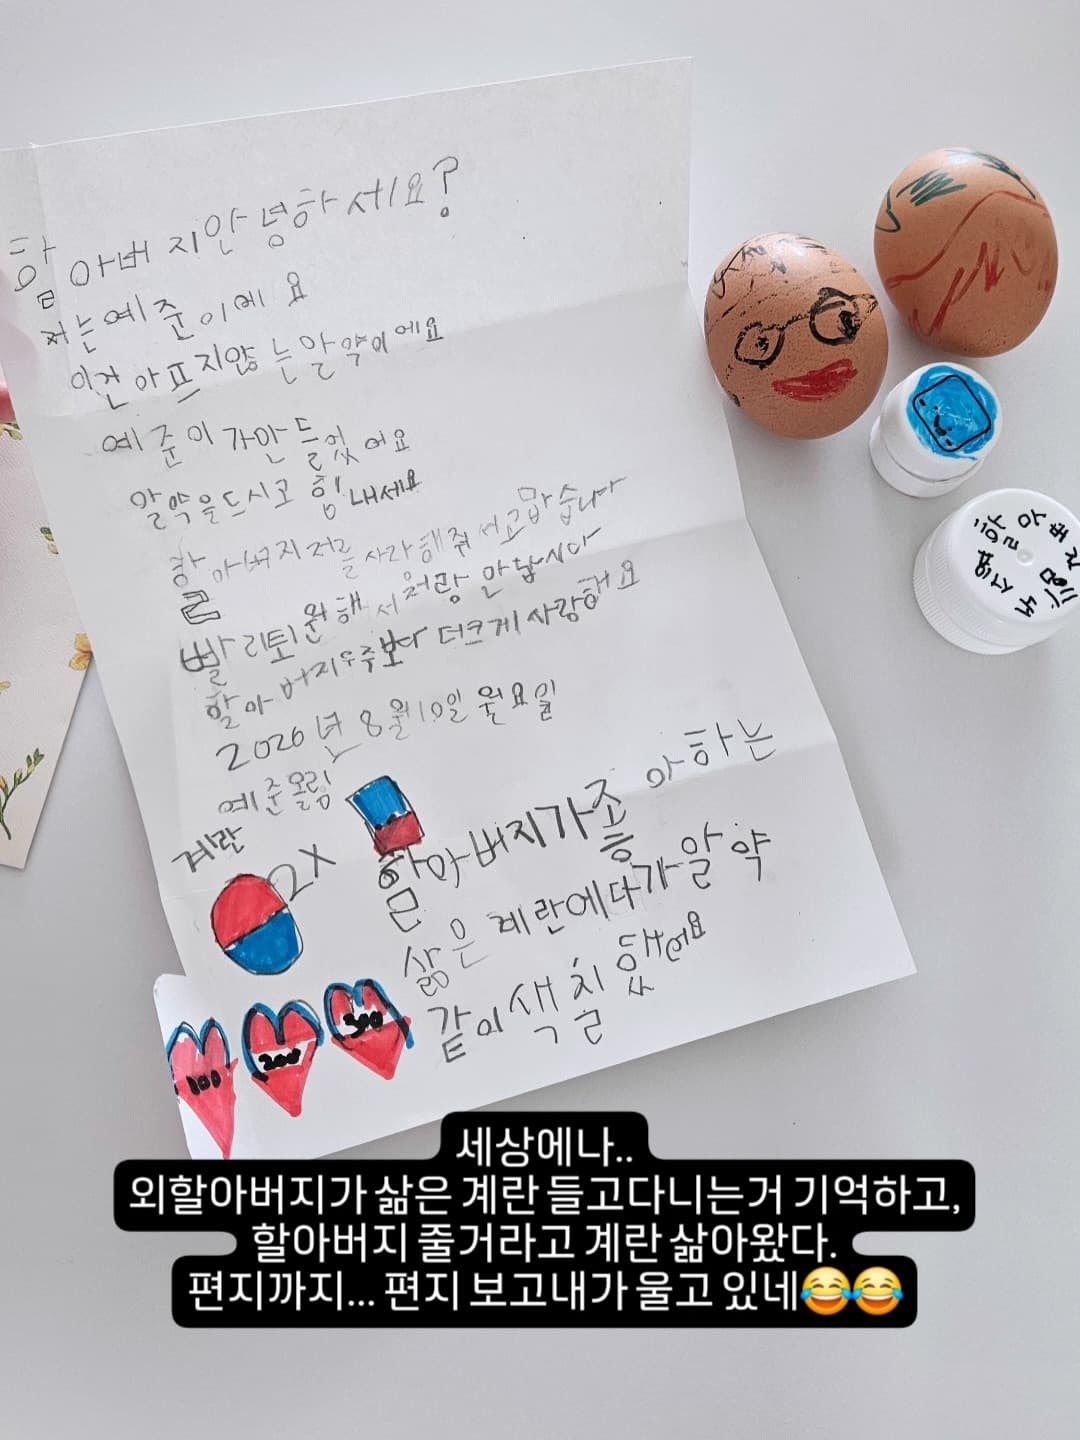 할아버지안녕하세요?
저는예준이에요
이건아프지않는알약이에요
예준이가만들었어요
알약을드시고힘내세요
할아버지저를사랑해줘서고맙습니다
빨리퇴원해서저랑만납시다
할아버지우주보다더크게사랑해요
2026년8월10일월요일
예준올림
계란
2X
할아버지가좋아하는
삶은계란에다가알약
같이색칠했어요
100
200
300
세상에나..
외할아버지가 삶은 계란 들고다니는거 기억하고,
할아버지 줄거라고 계란 삶아왔다.
편지까지... 편지 보고내가 울고 있네😂😂